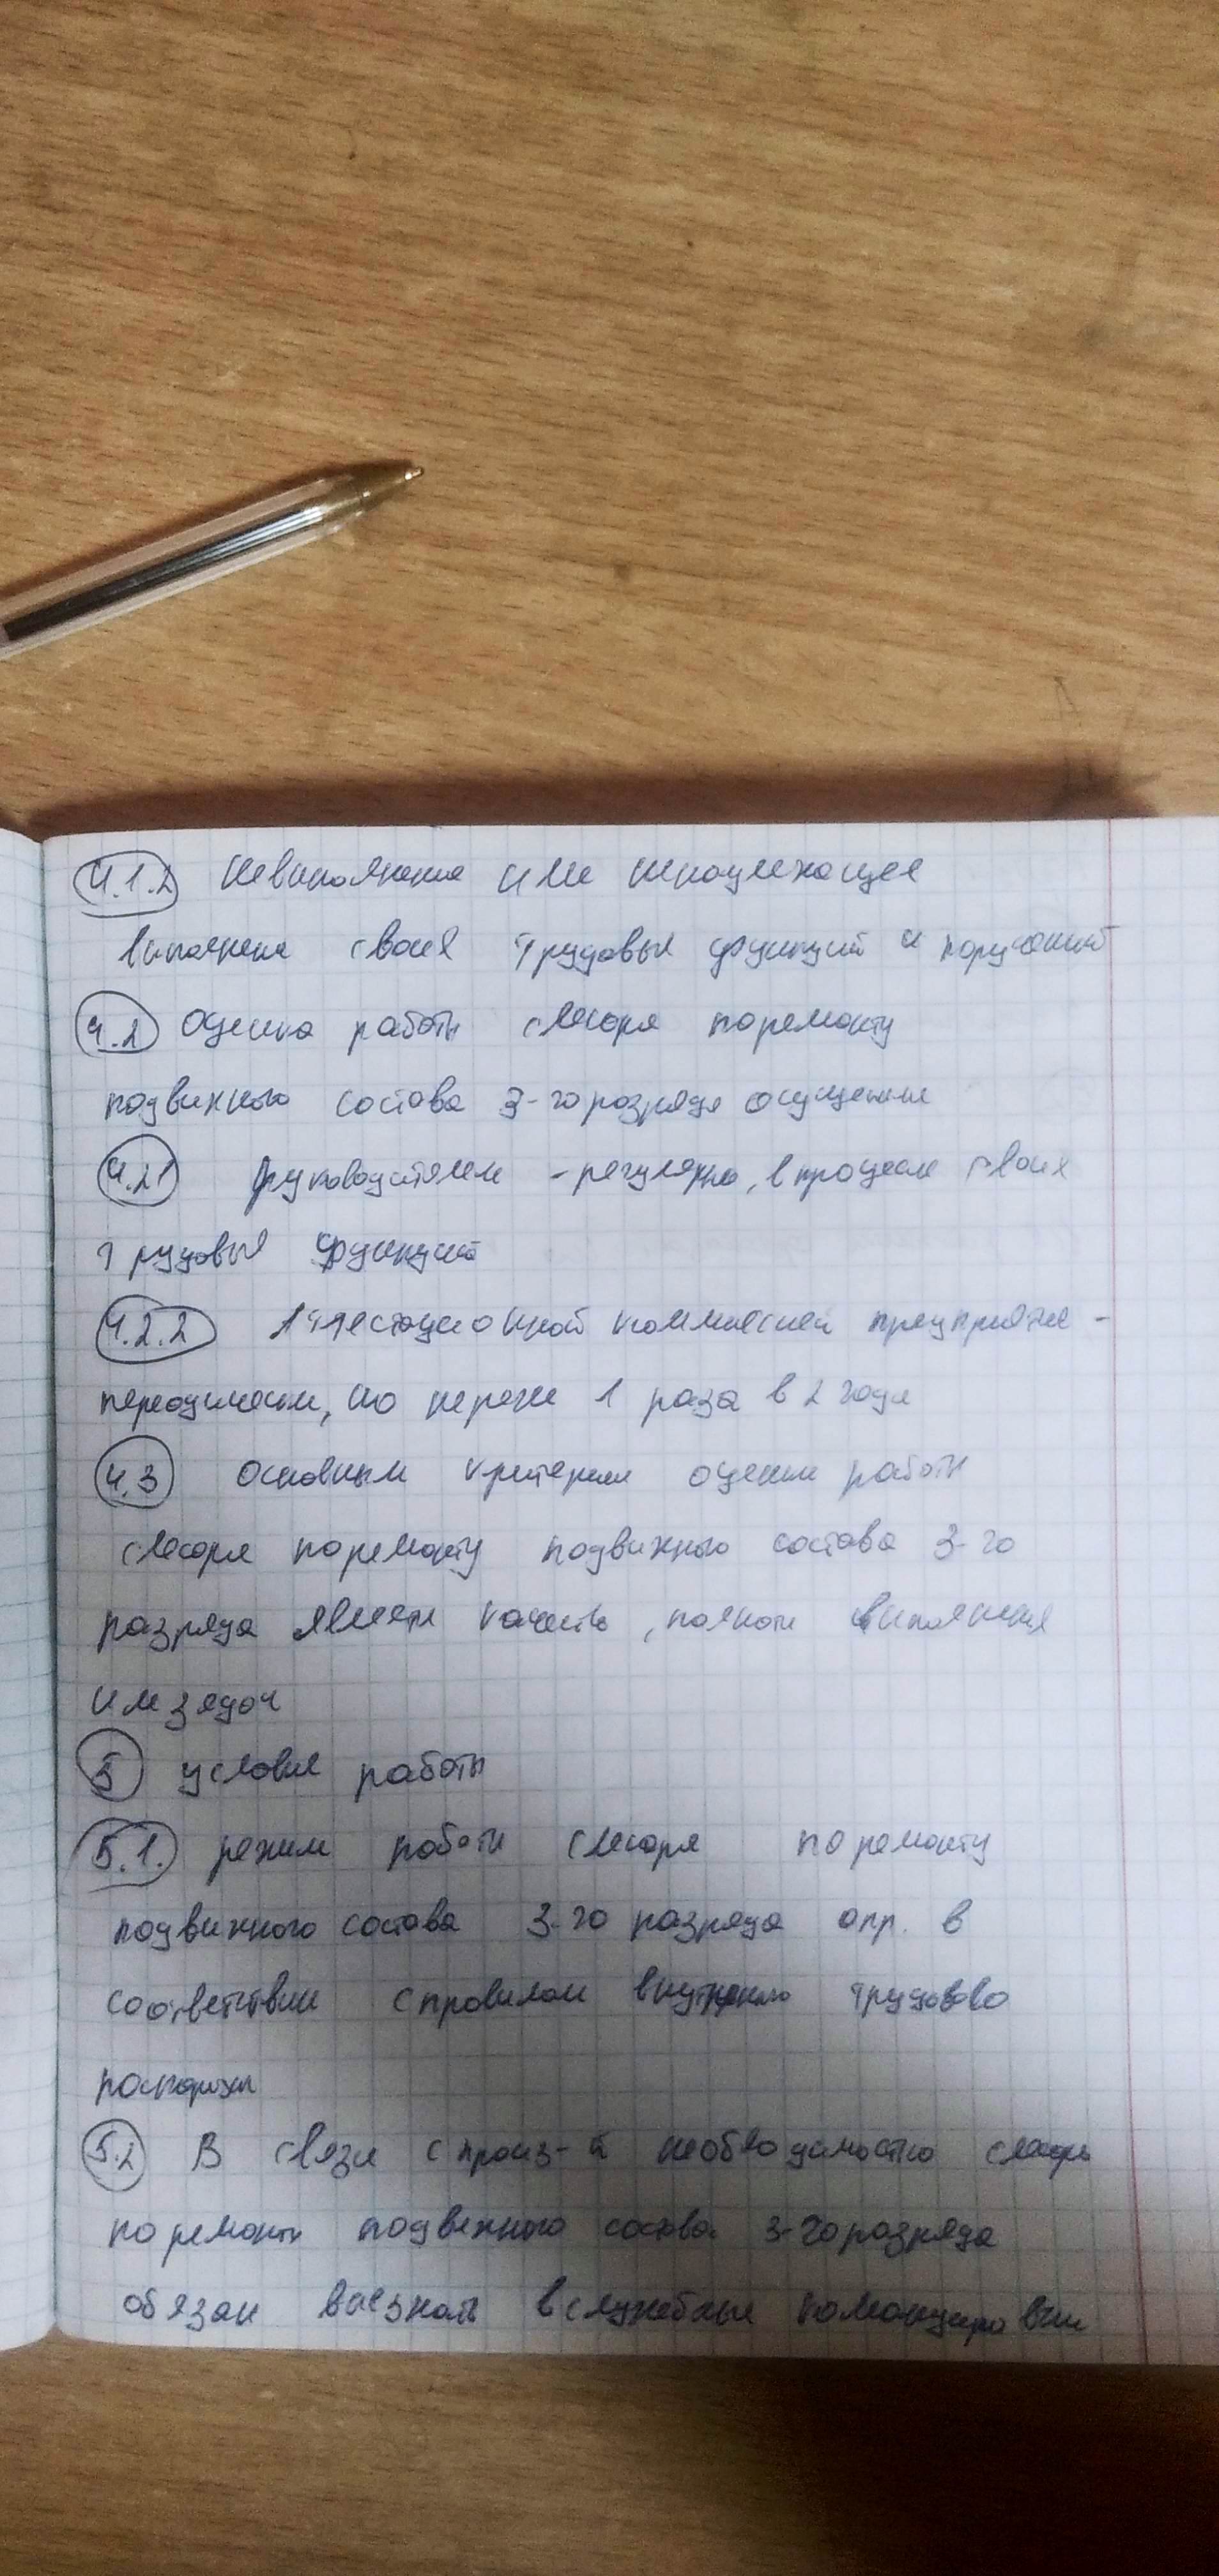 4.1.2 Невыполнение или ненадлежащее
выполнение своих трудовых функций и поручений
4.2 Оценка работы слесаря по ремонту
подвижного состава 3-го разряда
4.21 руководителем - регулярно, в процессе своих
трудовых функций
4.2.2 Аттестационной комиссией предприятие -
но не реже 1 раза в 2 года
4.3 основным критерием оценки работы
слесаря по ремонту подвижного состава 3-го
разряда качество, полнота выполнения
им задач
5 условия работы
5.1. режим работы слесаря по ремонту
подвижного состава 3-го разряда опр. в
соответствии с правилом трудового
5.2 В связи с произ-й необходимостью слесарь
по ремонту подвежного состава 3-го разряда
обязан выезжать в служебные командировки